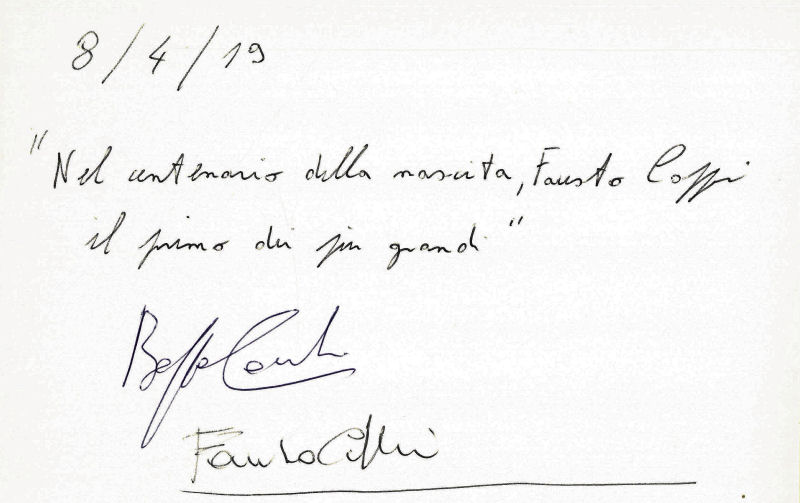 8/4/19
"Nel centenario della nascita, Fausto Coppi
il primo dei più grandi"
Beppe Conti
Fausto Coppi